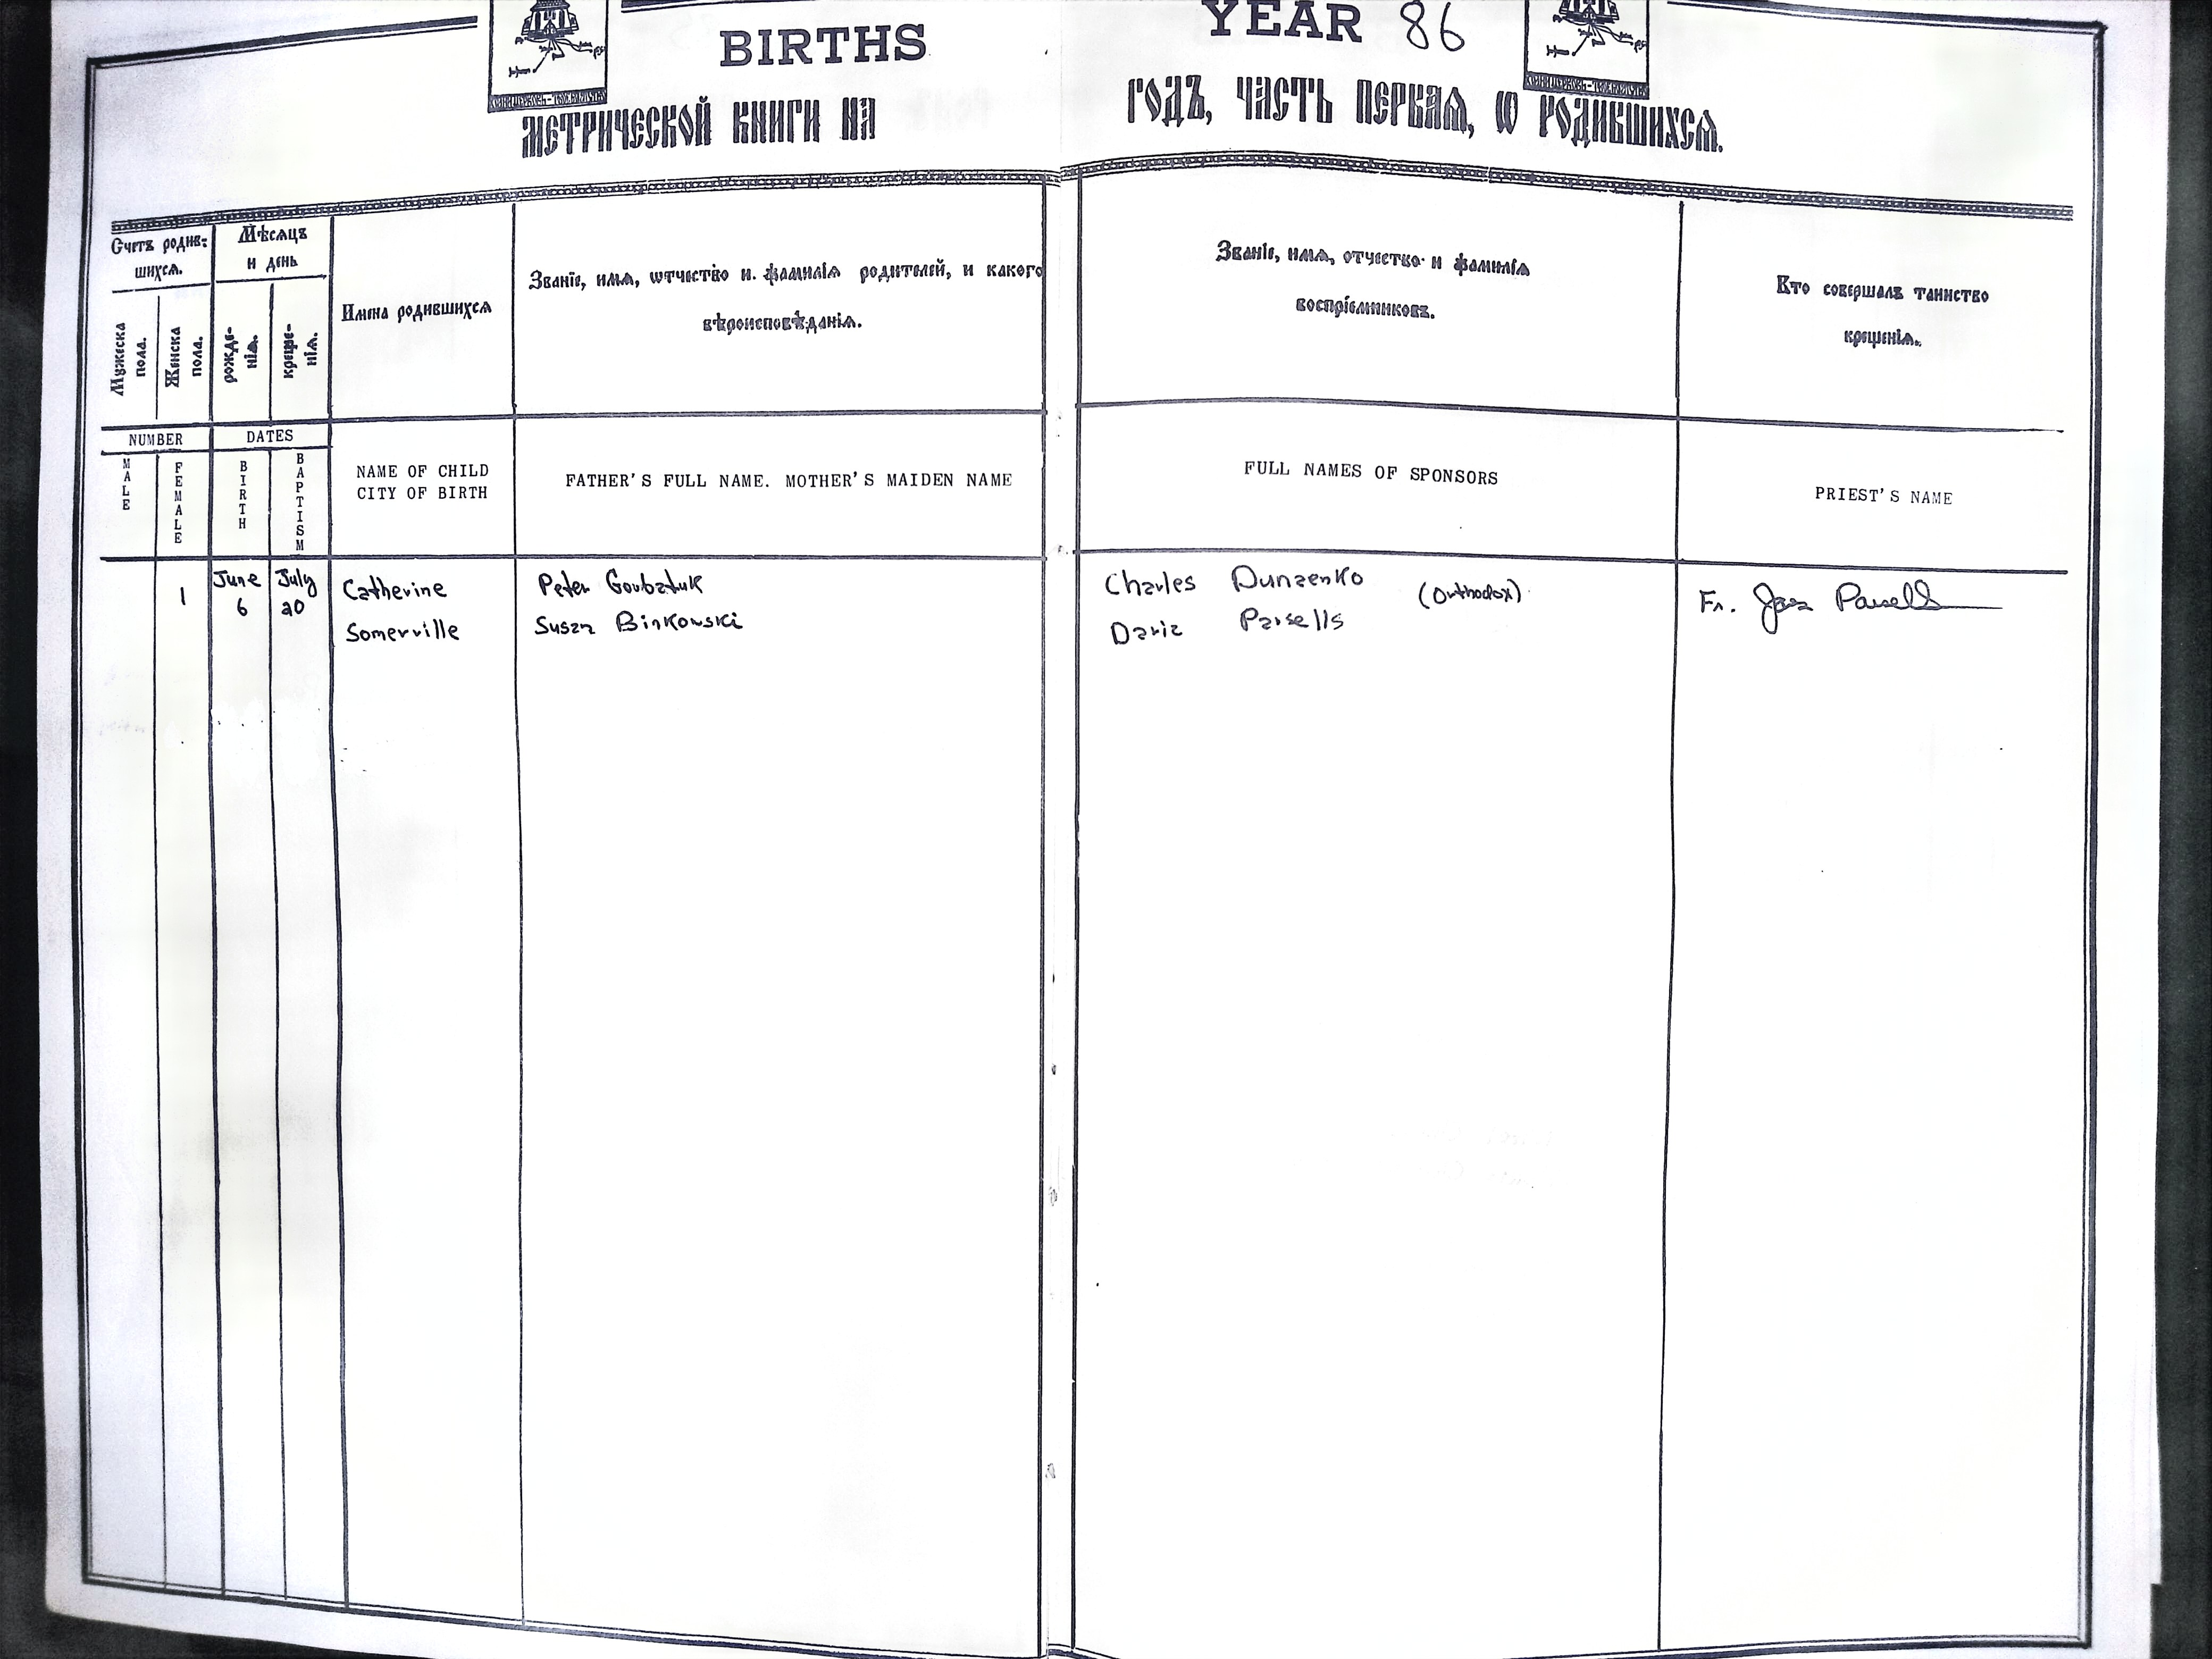 BIRTHS
YEAR 86
МЕТРИЧЕСКОЙ КНИГИ НА
ГОДЪ, ЧАСТЬ ПЕРВАѦ, Ѡ РОДИВШИХСѦ.
Счетъ родив-
шихсѧ.
Мѣсѧцъ
и день
Мужеска
пола.
Женска
пола.
рожде-
нїѧ.
креще-
нїѧ.
Имена родившихсѧ
Званїе, имѧ, ѡтчество и фамилїѧ родителей, и какого
вѣроисповѣданїѧ.
Званїе, имѧ, отчество и фамилїѧ
воспрїемниковъ.
Кто совершалъ таинство
крещенїѧ.
NUMBER
DATES
MALE
FEMALE
BIRTH
BAPTISM
NAME OF CHILD
CITY OF BIRTH
FATHER'S FULL NAME. MOTHER'S MAIDEN NAME
FULL NAMES OF SPONSORS
PRIEST'S NAME
1
June
6
July
20
Catherine
Somerville
Peter Gorbatuk
Susan Binkowski
Charles Dunaenko (Orthodox)
Daria Parsells
Fr. Parsells